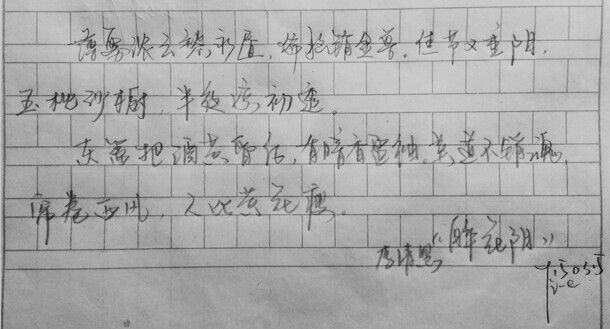 薄雾浓云愁永昼，瑞脑销金兽。佳节又重阳，
玉枕纱橱，半夜凉初透。
东篱把酒黄昏后，有暗香盈袖。莫道不销魂
帘卷西风，人比黄花瘦。
李清照《醉花阴》